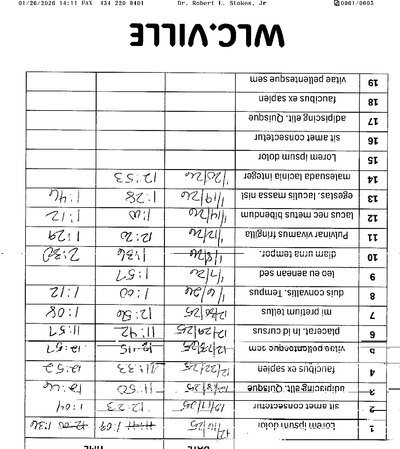 01/20/2026 14:11 FAX 434 220 8401 Dr. Robert L. Stokes, Jr 0001/0005
DATE TIME
1 Lorem ipsum dolor 1:09 1:36
2 sit amet consectetur 12/17/25 12:23 1:04
3 adipiscing elit. Quisque 11:50 12:46
4 faucibus ex sapien 12/22/25 11:33 12:52
5 vitae pellentesque sem 12/23/25 12:15 12:57
6 placerat. In id cursus 12/29/25 11:42 11:57
7 mi pretium tellus 12/30/25 12:50 1:08
8 duis convallis. Tempus 1/6/26 1:00 1:12
9 leo eu aenean sed 1/7/26 1:57
10 diam urna tempor. 1/8/26 1:36 2:30
11 Pulvinar vivamus fringilla 1/12/26 12:20 1:29
12 lacus nec metus bibendum 1/14/26 1:00 1:12
13 egestas. Iaculis massa nisl 1/19/26 1:28 1:46
14 malesuada lacinia integer 1/20/26 12:53
15 Lorem ipsum dolor
16 sit amet consectetur
17 adipiscing elit. Quisque
18 faucibus ex sapien
19 vitae pellentesque sem
WLC.VILLE